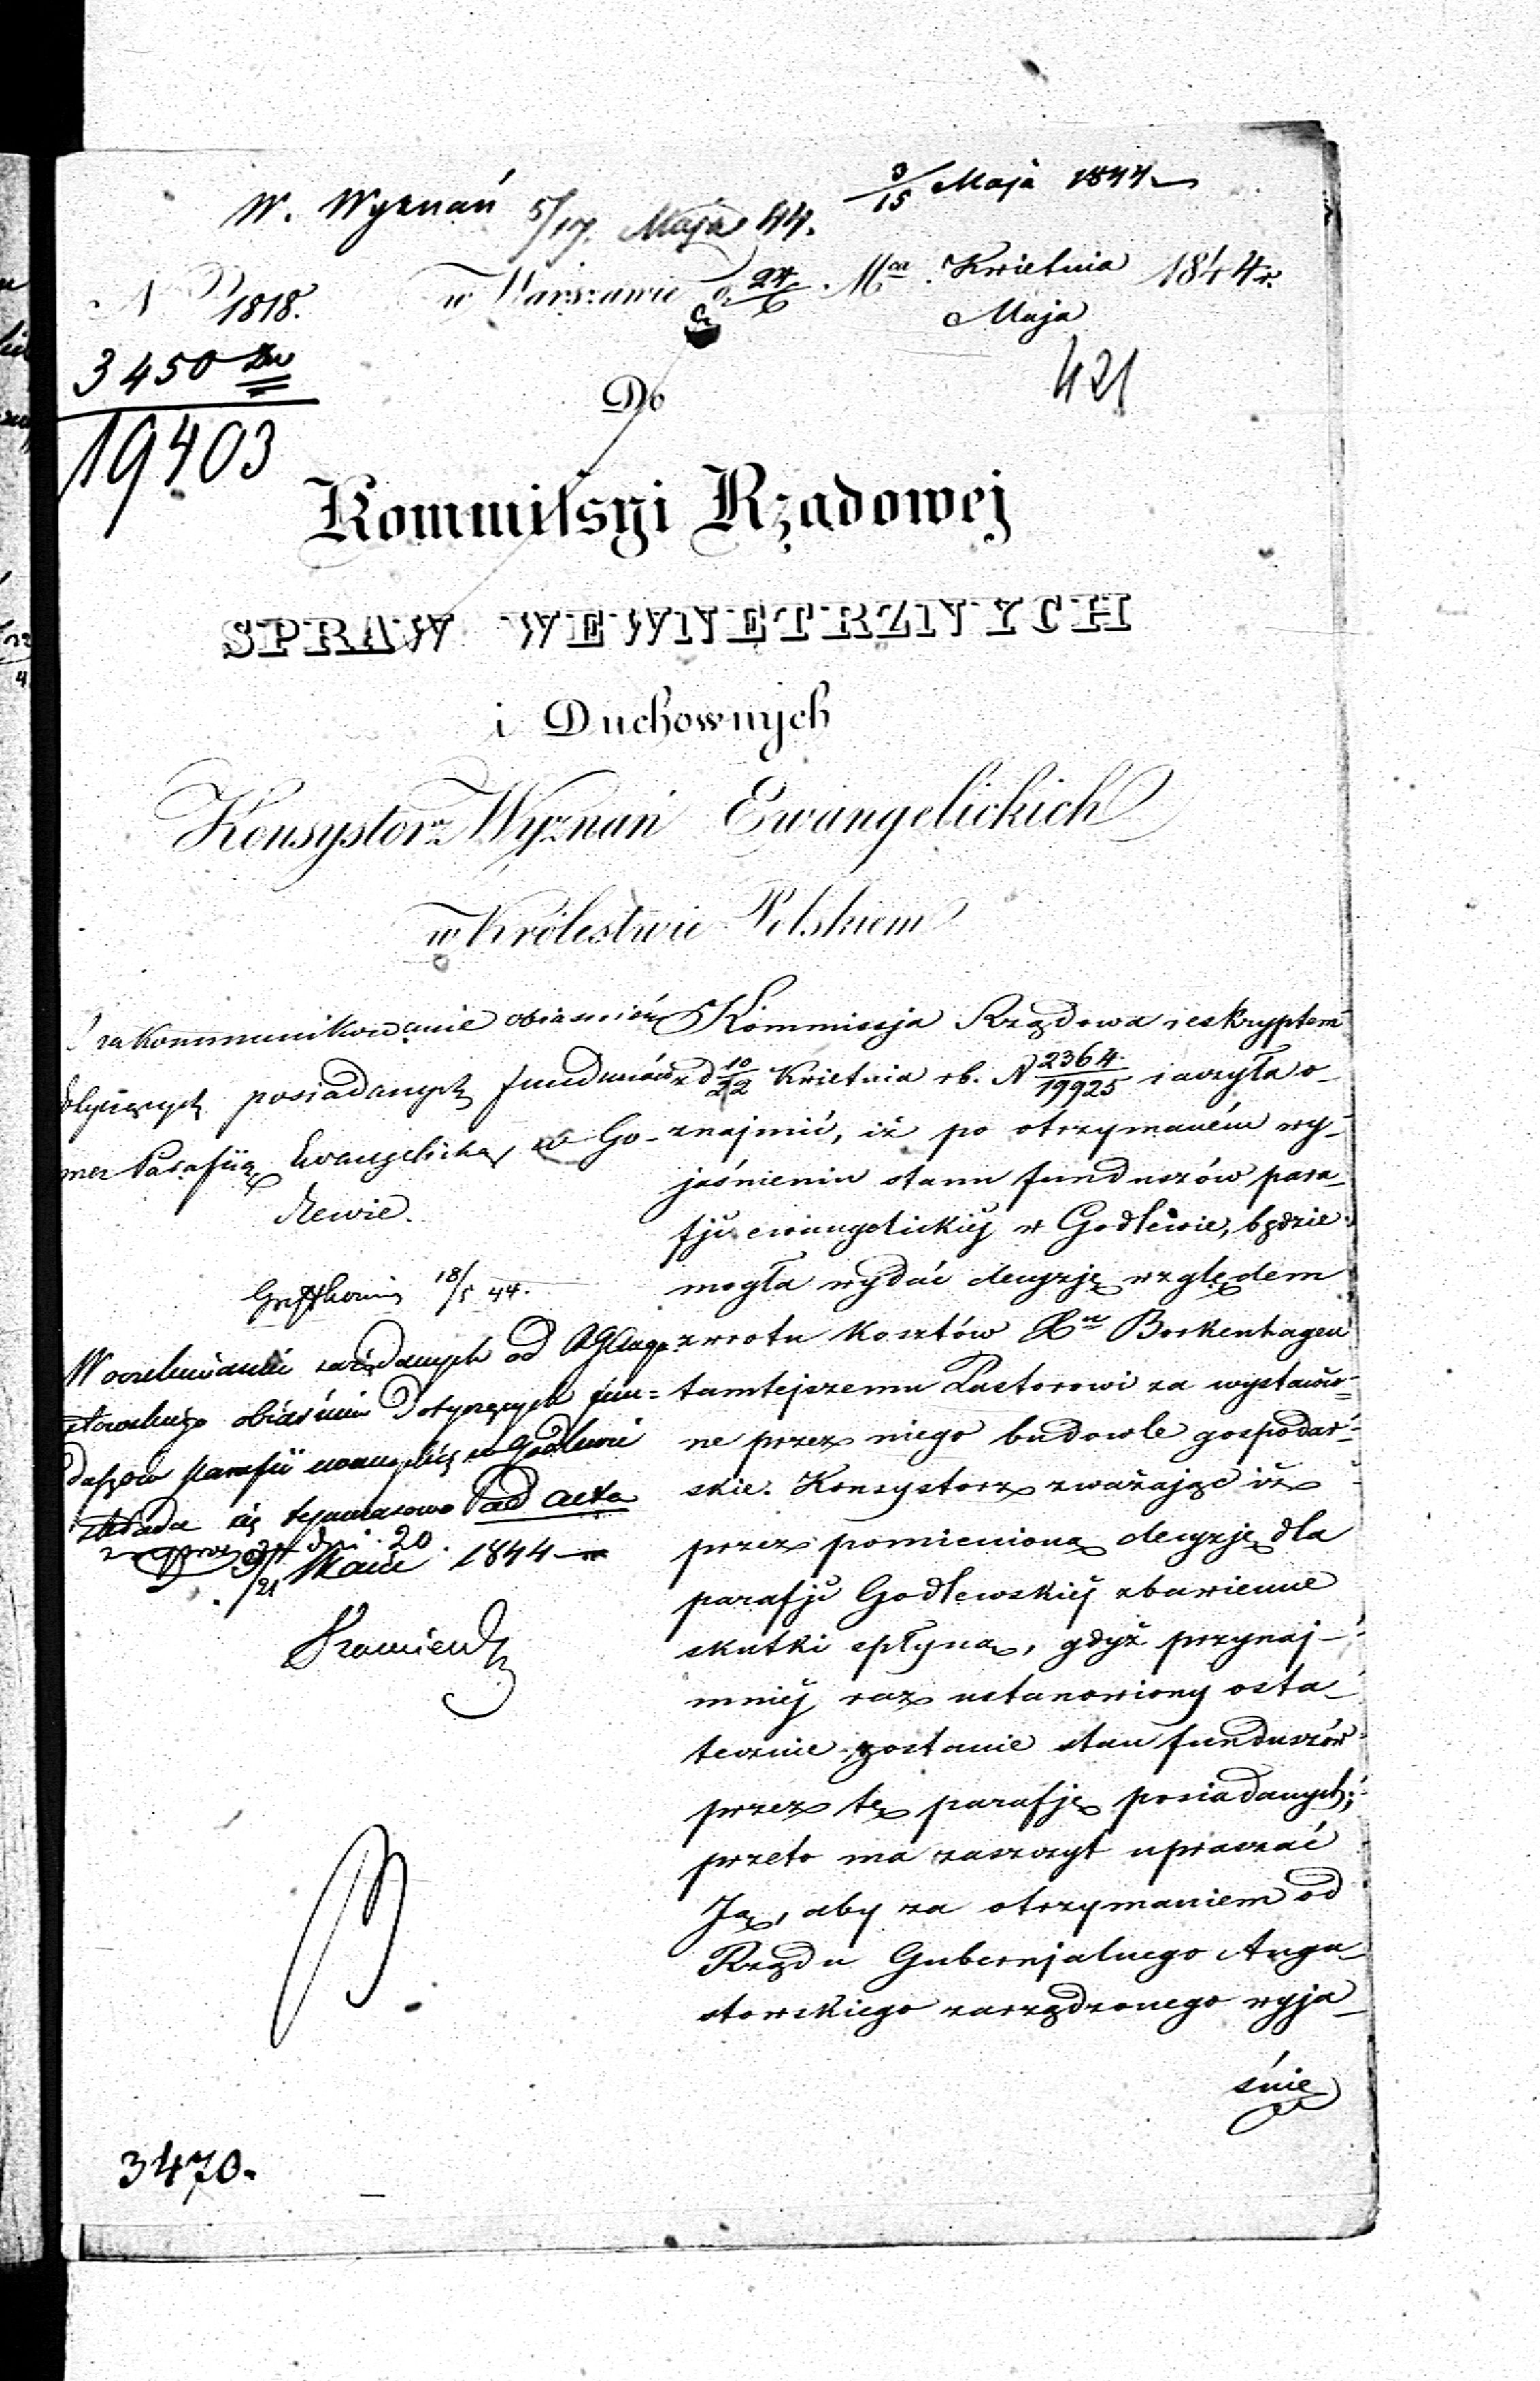 3/15 Maja 1844
W. Wyznań 5/17. Maja 44.
N 1818.
w Warszawie d. 24/6 Mca Kwietnia Maja 1844 r.
3450
19403
421
Do
Kommissyi Rządowej
SPRAW WEWNĘTRZNYCH
i Duchownych
Konsystorz Wyznań Ewangelickich
w Królestwie Polskiem
O zakommunikowanie obiaśnień
dotyczących posiadanych funduszów
przez Parafiją Ewangelicką w Go-
dlewie.
18/5 44.
W oczekiwaniu zażądanych od RGAugu-
stowskiego obiaśnień dotyczących fun=
duszów parafii ewangelickiej w Godlewie
składa się tymczasowo ad acta
dni 20.
D 9/21 Maia 1844
Kommissja Rządowa reskryptem
z d 10/22 Kwietnia rb. N 2364/19925 raczyła o-
znajmić, iż po otrzymaném wy-
jaśnieniu stanu funduszów para-
fji ewangelickiéj w Godlewie, będzie
mogła wydać decyzję względem
zwrotu kosztów Xu Borkenhagen
tamtejszemu Pastorowi za wystawio-
ne przez niego budowle gospodar-
skie. Konsystorz zważając iż
przez pomienioną decyzję dla
parafji Godlewskiéj zbawienne
skutki spłyną, gdyż przynaj-
mniéj raz ustanowiony osta-
tecznie zostanie stan funduszów
przez tę parafję posiadanych;
przeto ma zaszczyt upraszać
Ją, aby za otrzymaniem od
Rządu Gubernjalnego Augu-
stowskiego zarządzonego wyja-
śnie
3470.